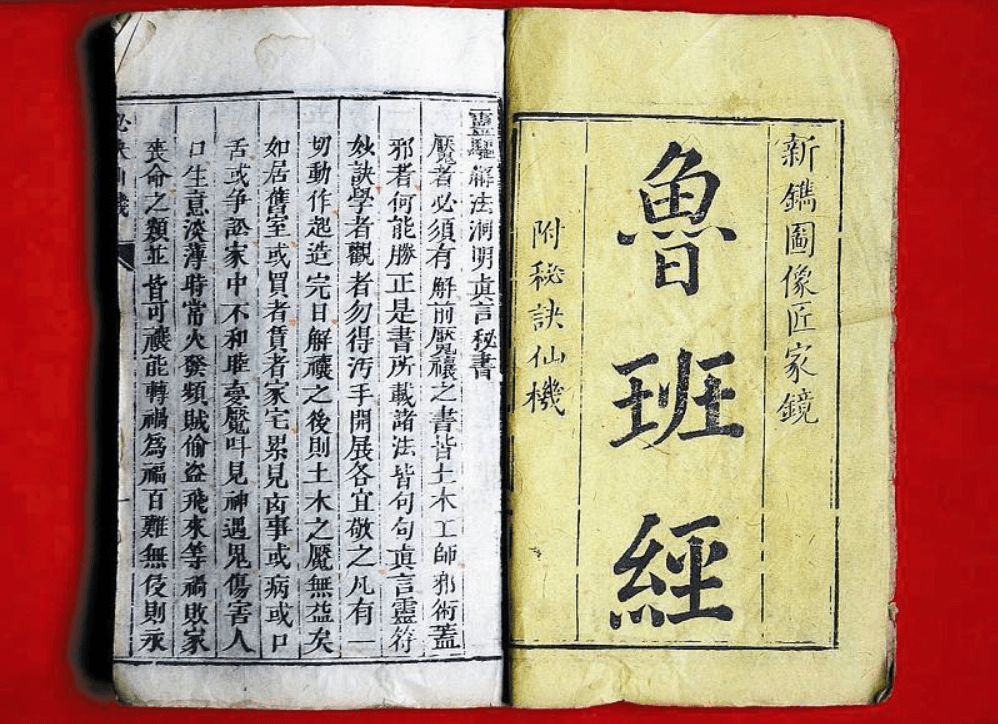 新鐫圖像匠家鏡
魯班經
附秘訣仙機
靈驅解法洞明眞言秘書
魘者必須有解前魘禳之書皆土木工師邪術蓋
邪者何能勝正是書所載諸法皆句句眞言靈符
妙訣學者觀者勿得汚手開展各宜敬之凡有一
切動作起造完日解禳之後則土木之魘無益矣
如居舊室或買者賃者家宅累見凶事或病或口
舌或争訟家中不和睡夢魘呌見神遇鬼傷害人
口生意淡薄時常火發頻賊偷盜飛來等禍敗家
喪命之類並皆可禳能轉禍爲福百難無侵則永